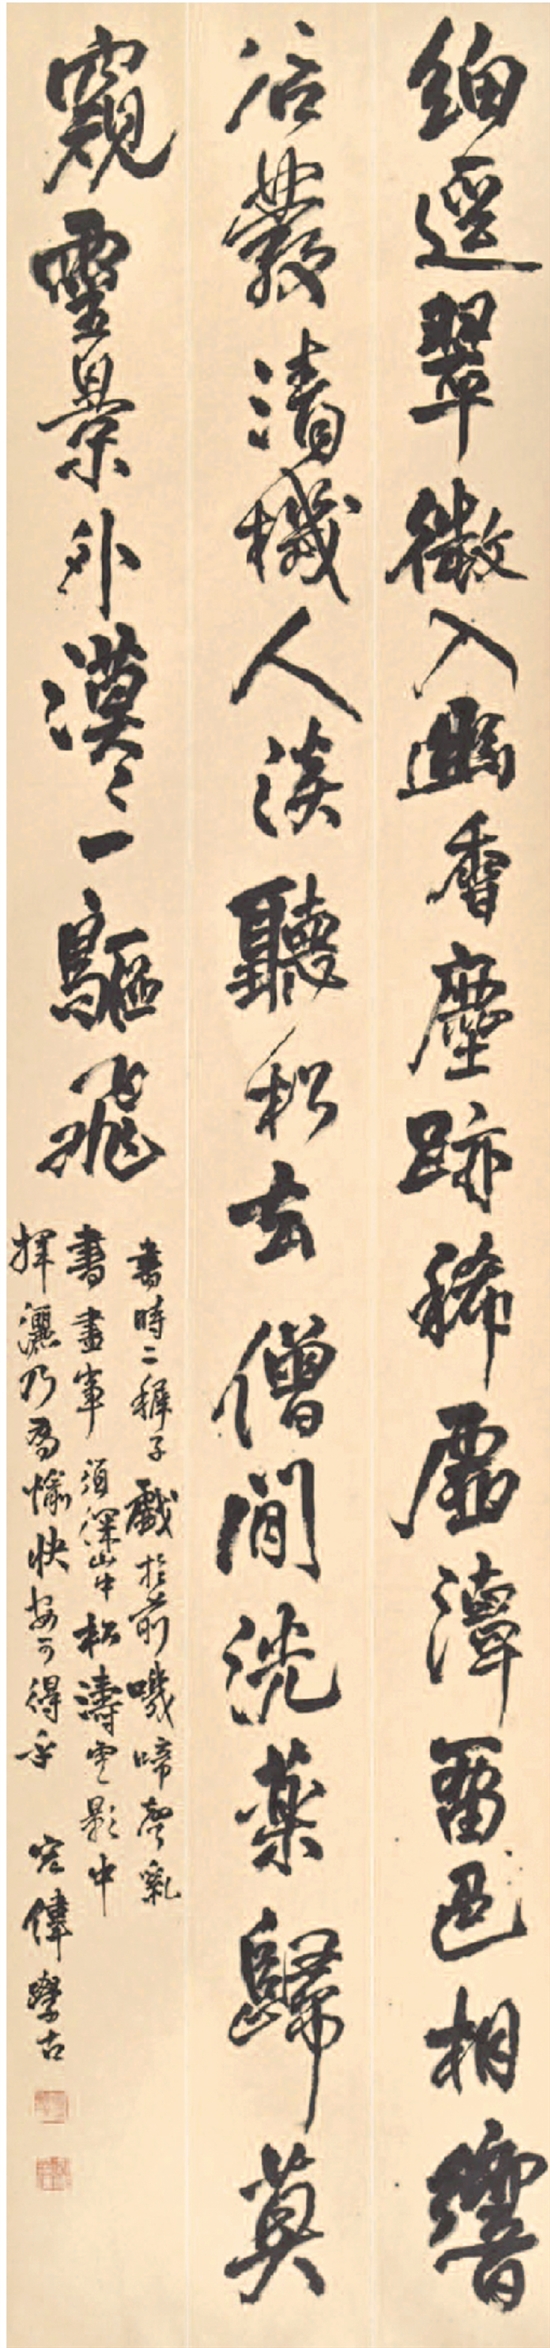 紺逕翠微入幽香塵跡稀虛潭留色相響
谷發清機人淡聽松去僧閒洗藥歸莫
窺靈景外漠〻一驅飛
書時二穉子戲於前嘰啼聲亂
書畫事須深山中松濤雲影中
揮灑乃為愉快安可得乎 偉學古